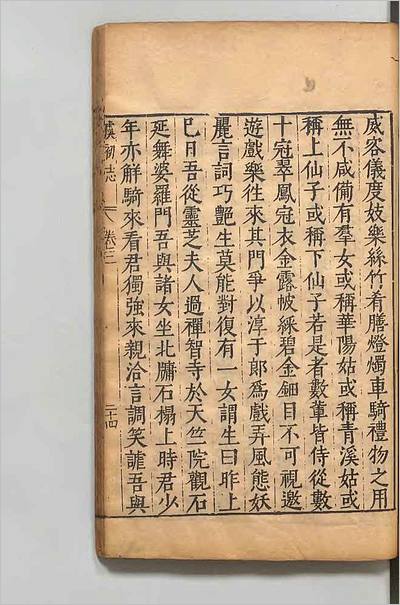 威容儀度妓樂絲竹肴膳燈燭車騎禮物之用
無不咸備有羣女或稱華陽姑或稱青溪姑或
稱上仙子或稱下仙子若是者數輩皆侍從數
十冠翠鳳冠衣金霞帔綵碧金鈿目不可視遨
遊戲樂徃來其門爭以淳于郎爲戲弄風態妖
麗言詞巧艷生莫能對復有一女謂生曰昨上
巳日吾從靈芝夫人過禪智寺於天竺院觀石
延舞婆羅門吾與諸女坐北牖石榻上時君少
年亦解騎來看君獨強來親洽言調笑謔吾與
虞初志 卷三 二十四